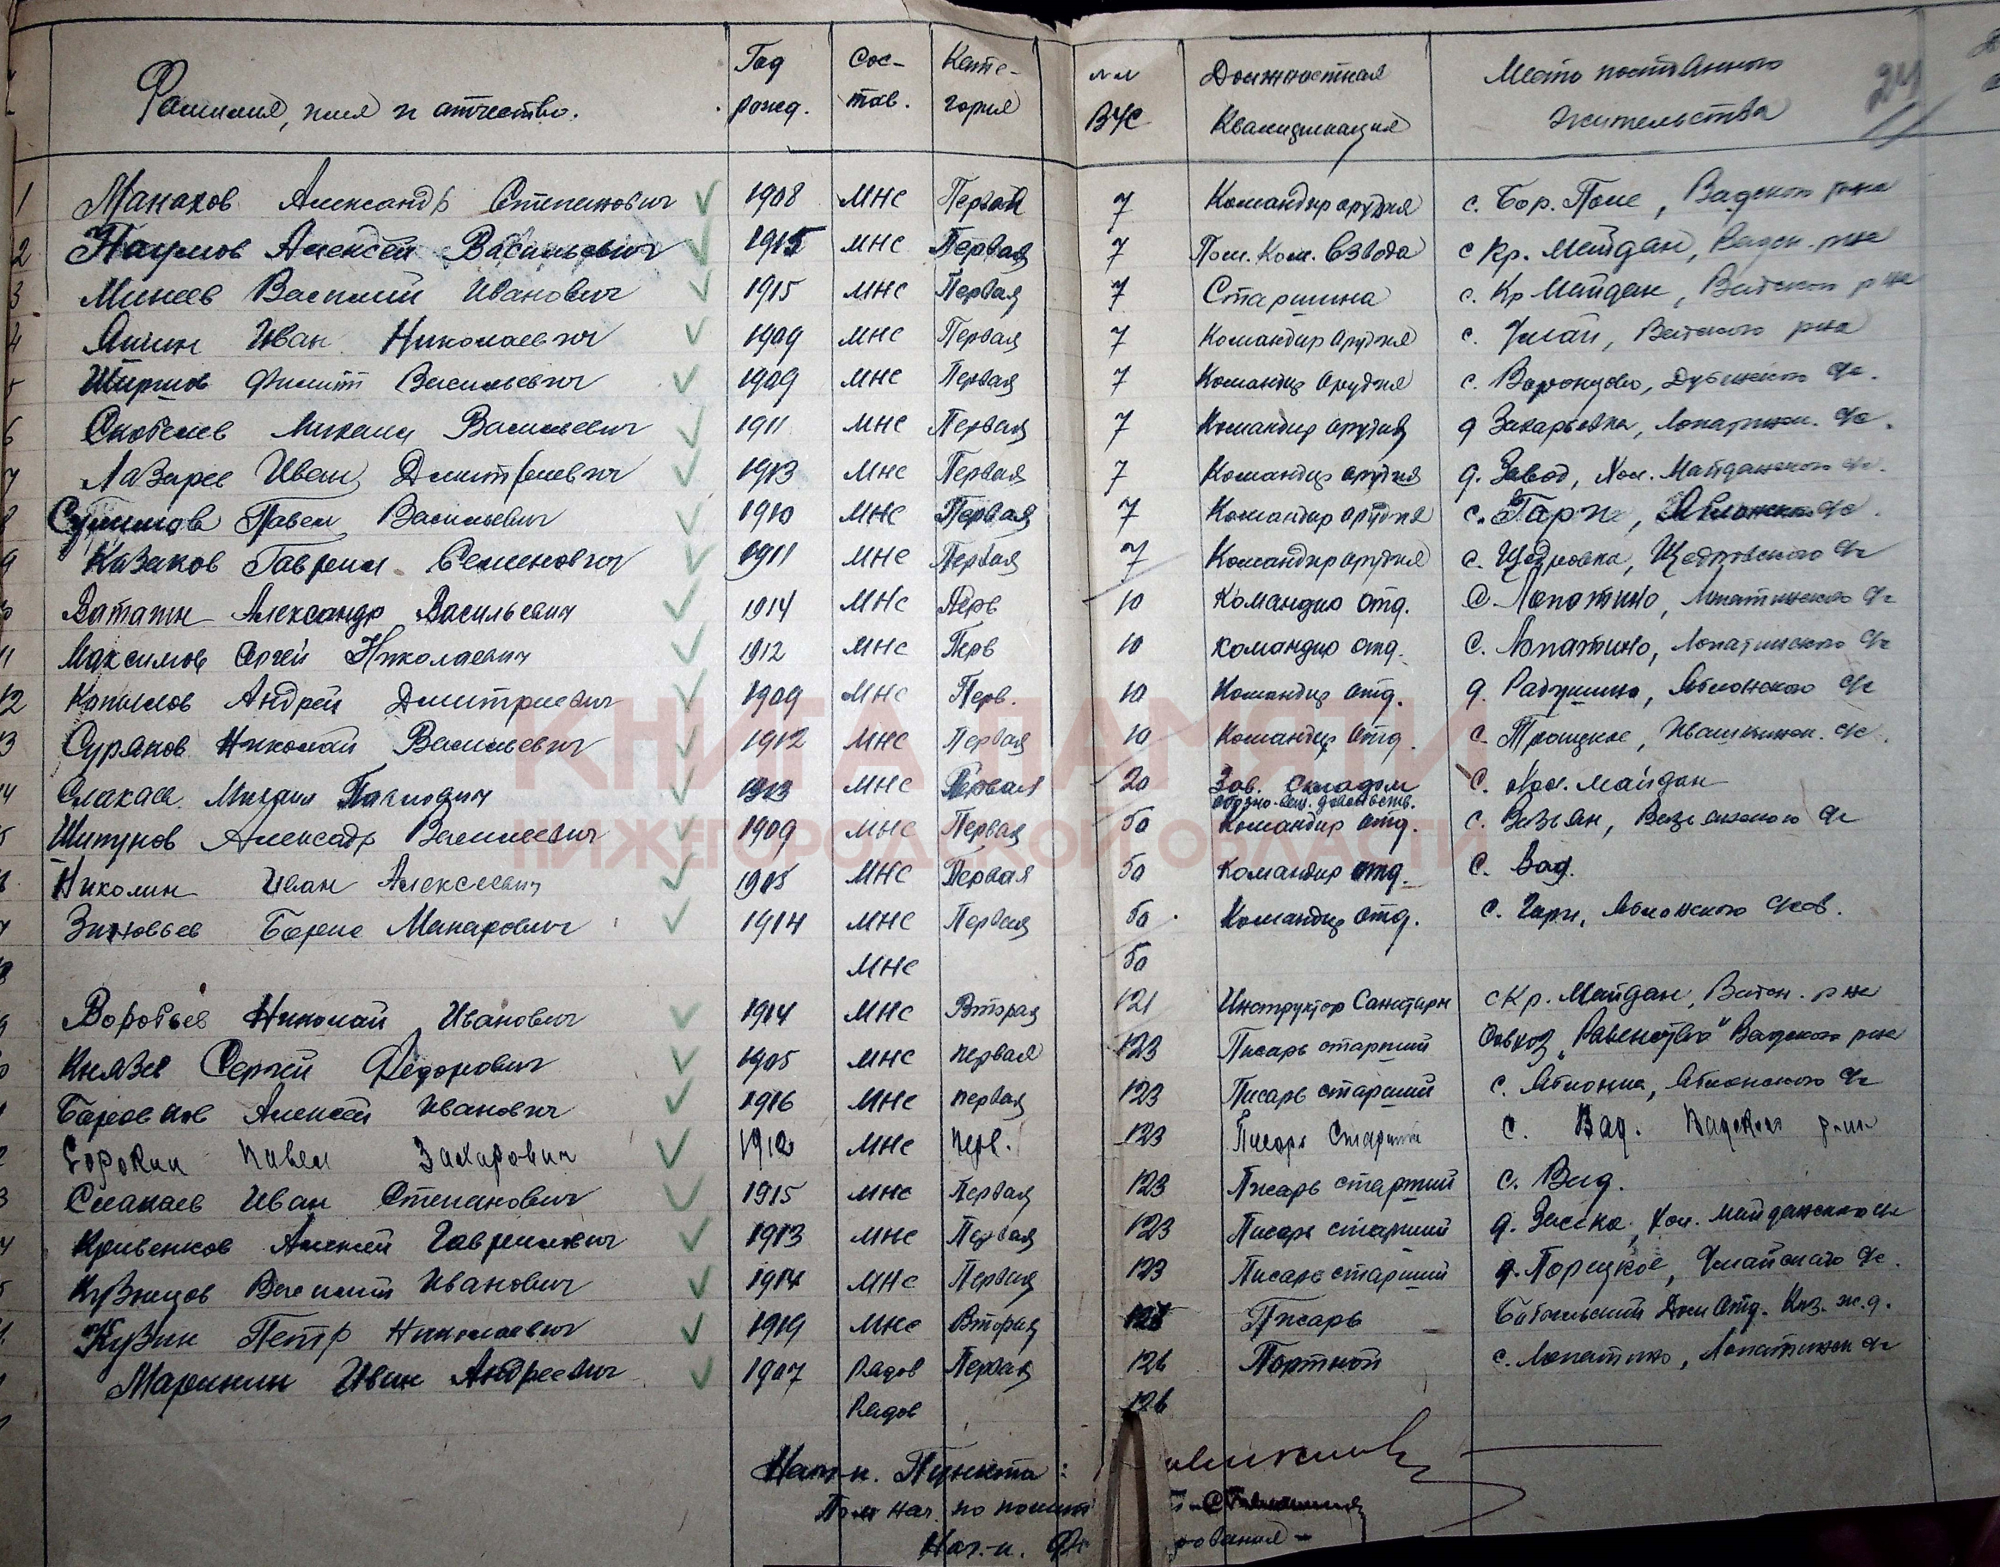 Фамилия, имя и отчество. Год рожд. Сос-тав. Кате-гория №№ ВУС Должностная Квалификация Место постоянного жительства 24
1 Манахов Александр Степанович 1908 МНС Первая 7 Командир орудия с. Бор. Поле, Вадского р-на
2 Наумов Алексей Васильевич 1915 МНС Первая 7 Пом. Ком. Взвода с Кр. Майдан, р-на
3 Минеев Василий Иванович 1915 МНС Первая 7 Старшина с. Кр Майдан, Вадского р-на
4 Иван Николаевич 1909 МНС Первая 7 Командир орудия с. Умай, Вадского р-на
5 Филипп Васильевич 1909 МНС Первая 7 Командир орудия с. Воронцово, Дубенского с/с.
6 Скобелев Михаил Васильевич 1911 МНС Первая 7 Командир орудия д Захарьевка, Лопатинск. с/с.
7 Лазарев Иван Дмитриевич 1913 МНС Первая 7 Командир орудия д. Завод, Хол. Майданского с/с.
8 Павел Васильевич 1910 МНС Первая 7 Командир орудия с. Гари, Яблонского с/с.
9 Казаков Гаврил Семенович 1911 МНС Первая 7 Командир орудия с. Щедровка, Щедровского с/с
Ватагин Александр Васильевич 1914 МНС Перв 10 Командир отд. с. Лопатино, Лопатинского с/с
11 Максимов Сергей Николаевич 1912 МНС Перв 10 командир отд. с. Лопатино, Лопатинского с/с
12 Копылов Андрей Дмитриевич 1909 МНС Перв. 10 Командир отд. д. Радушино, Яблонского с/с
13 Суряков Николай Васильевич 1912 МНС Первая 10 Командир отд. с. Троицкое, Ивашкинск. с/с.
14 Слакаев Михаил Павлович 1913 МНС Первая 20 Зав. складом с. Хол. Майдан
обозно-вещ. довольств.
Шипунов Александр Васильевич 1909 МНС Первая 50 Командир отд. с. Вазьян, Вазьянского с/с
Николин Иван Алексеевич 1905 МНС Первая 50 Командир отд. с. Вад.
Зиновьев Борис Макарович 1914 МНС Первая 50 Командир отд. с. Гари, Яблонского с/сов.
МНС 50
Воробьев Николай Иванович 1914 МНС Вторая 121 Инструктор Санитарн с Кр. Майдан, Вадск. р-на
Князев Сергей Федорович 1905 МНС первая 123 Писарь старший Совхоз „Равенство" Вадского р-на
Алексей Иванович 1916 МНС первая 123 Писарь старший с. Яблонка, Яблонского с/с
Сорокин Павел Захарович 1912 МНС перв. 123 Писарь Старший с. Вад. Вадского р-на
Слакаев Иван Степанович 1915 МНС Первая 123 Писарь старший с. Вад.
Кривенков Алексей Гаврилович 1913 МНС Первая 123 Писарь старший д. Засека, Хол. Майданского с/с
Кузнецов Василий Иванович 1914 МНС Первая 123 Писарь старший д. Порецкое, Умайского с/с.
Кузин Петр Николаевич 1919 МНС Вторая Писарь Дом Отд. Каз. ж.д.
Маринин Иван Андреевич 1907 Рядов Первая 126 Портной с. Лопатино, Лопатинск с/с
Рядов 126
КНИГА ПАМЯТИ
НИЖЕГОРОДСКОЙ ОБЛАСТИ
Нач-к. Пункта:
Пом нач. по полит
Нач-к.